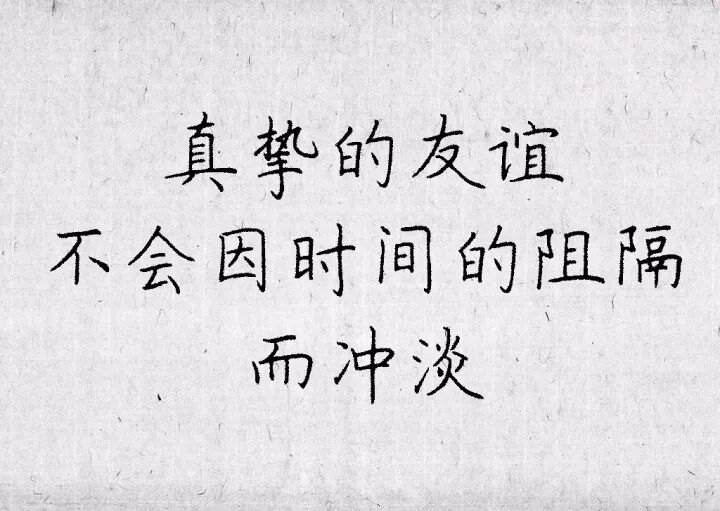 真挚的友谊
不会因时间的阻隔
而冲淡